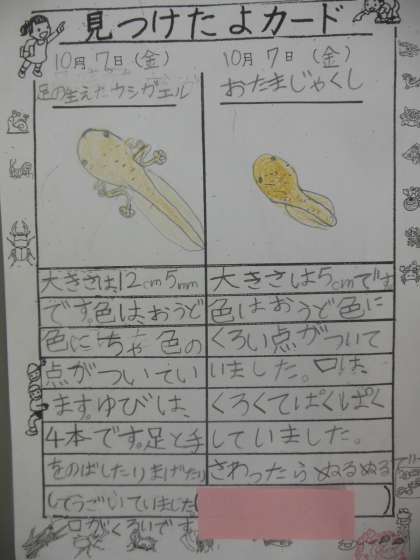 見つけたよカード
10月7日(金)
足の生えたウシガエル
大きさは、12cm5mm
です。色は、おうど
色にちゃ色の
点がついてい
ます。ゆびは、
4本です。足と手
をのばしたりまげたり
してうごいていました
口がくろいです
10月7日(金)
おたまじゃくし
大きさは5cmです。
色はおうど色に
くろい点がついて
いました。口は、
くろくてぱくぱく
していました。
さわったらぬるぬる